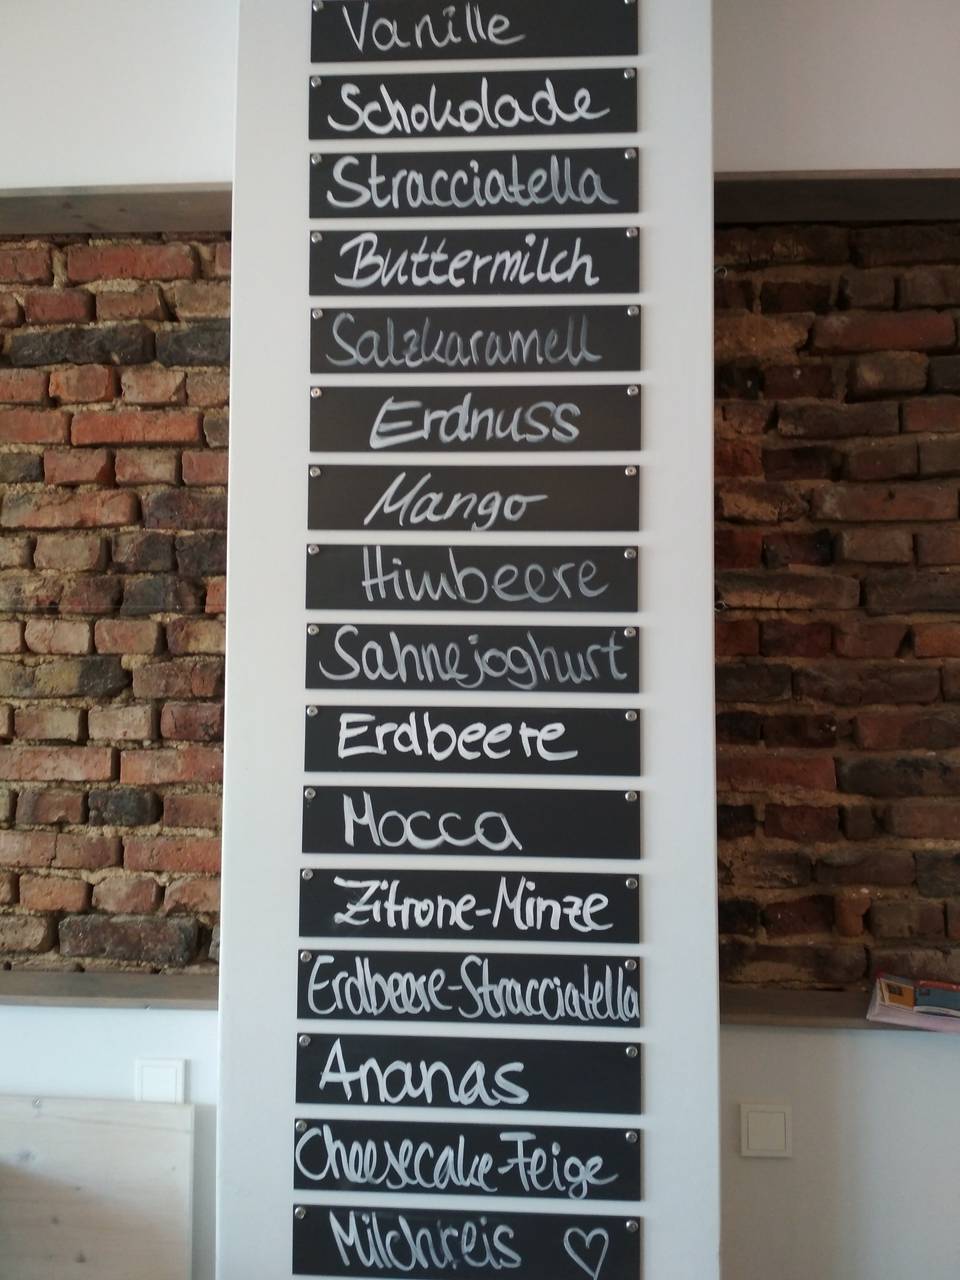 Vanille
Schokolade
Stracciatella
Buttermilch
Salzkaramell
Erdnuss
Mango
Himbeere
Sahnejoghurt
Erdbeere
Mocca
Zitrone-Minze
Erdbeere-Stracciatella
Ananas
Cheesecake-Feige
Milchreis ♡